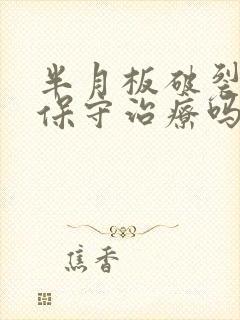 半月板破裂
保守治疗吗
焦香